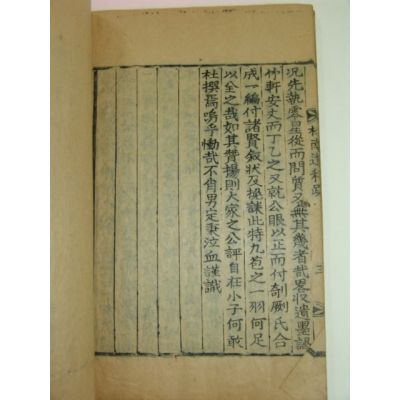 遺稿跋 三
況先執零星從而問質又無其幾者哉畧收遺墨謁
竹軒安丈而丁乙之又就公眼以正而付剞劂氏合
成一編付諸賢叙狀及挽誄此特九苞之一羽何足
以全之哉如其贊揚則大家之公評自在小子何敢
杜撰焉嗚乎慟哉不肖男定秉泣血謹識